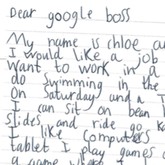 Dear google boss
My name is chloe an
I would like a job
want to work in a
do swimming in the
On saturday and a
I can sit on bean
slides and ride go k
I like computers
tablet I play games
a game where I